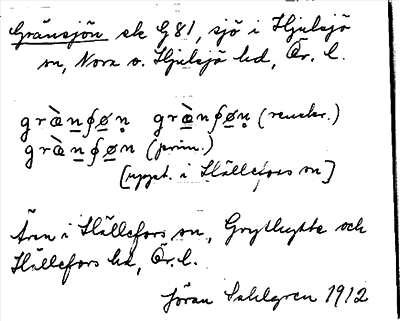 Gränsjön ek G81, sjö i Hjulsjö
sn, Nora o. Hjulsjö hd, Ör. l.
gràn̠ʃø̠n̥ gràn̠ʃø̠n̥ (renskr.)
gràn̠ʃø̠n (prim.)
[uppt. i Hällefors sn]
Även i Hällefors sn, Grythytte och
Hällefors hd, Ör. l.
Jöran Sahlgren 1912